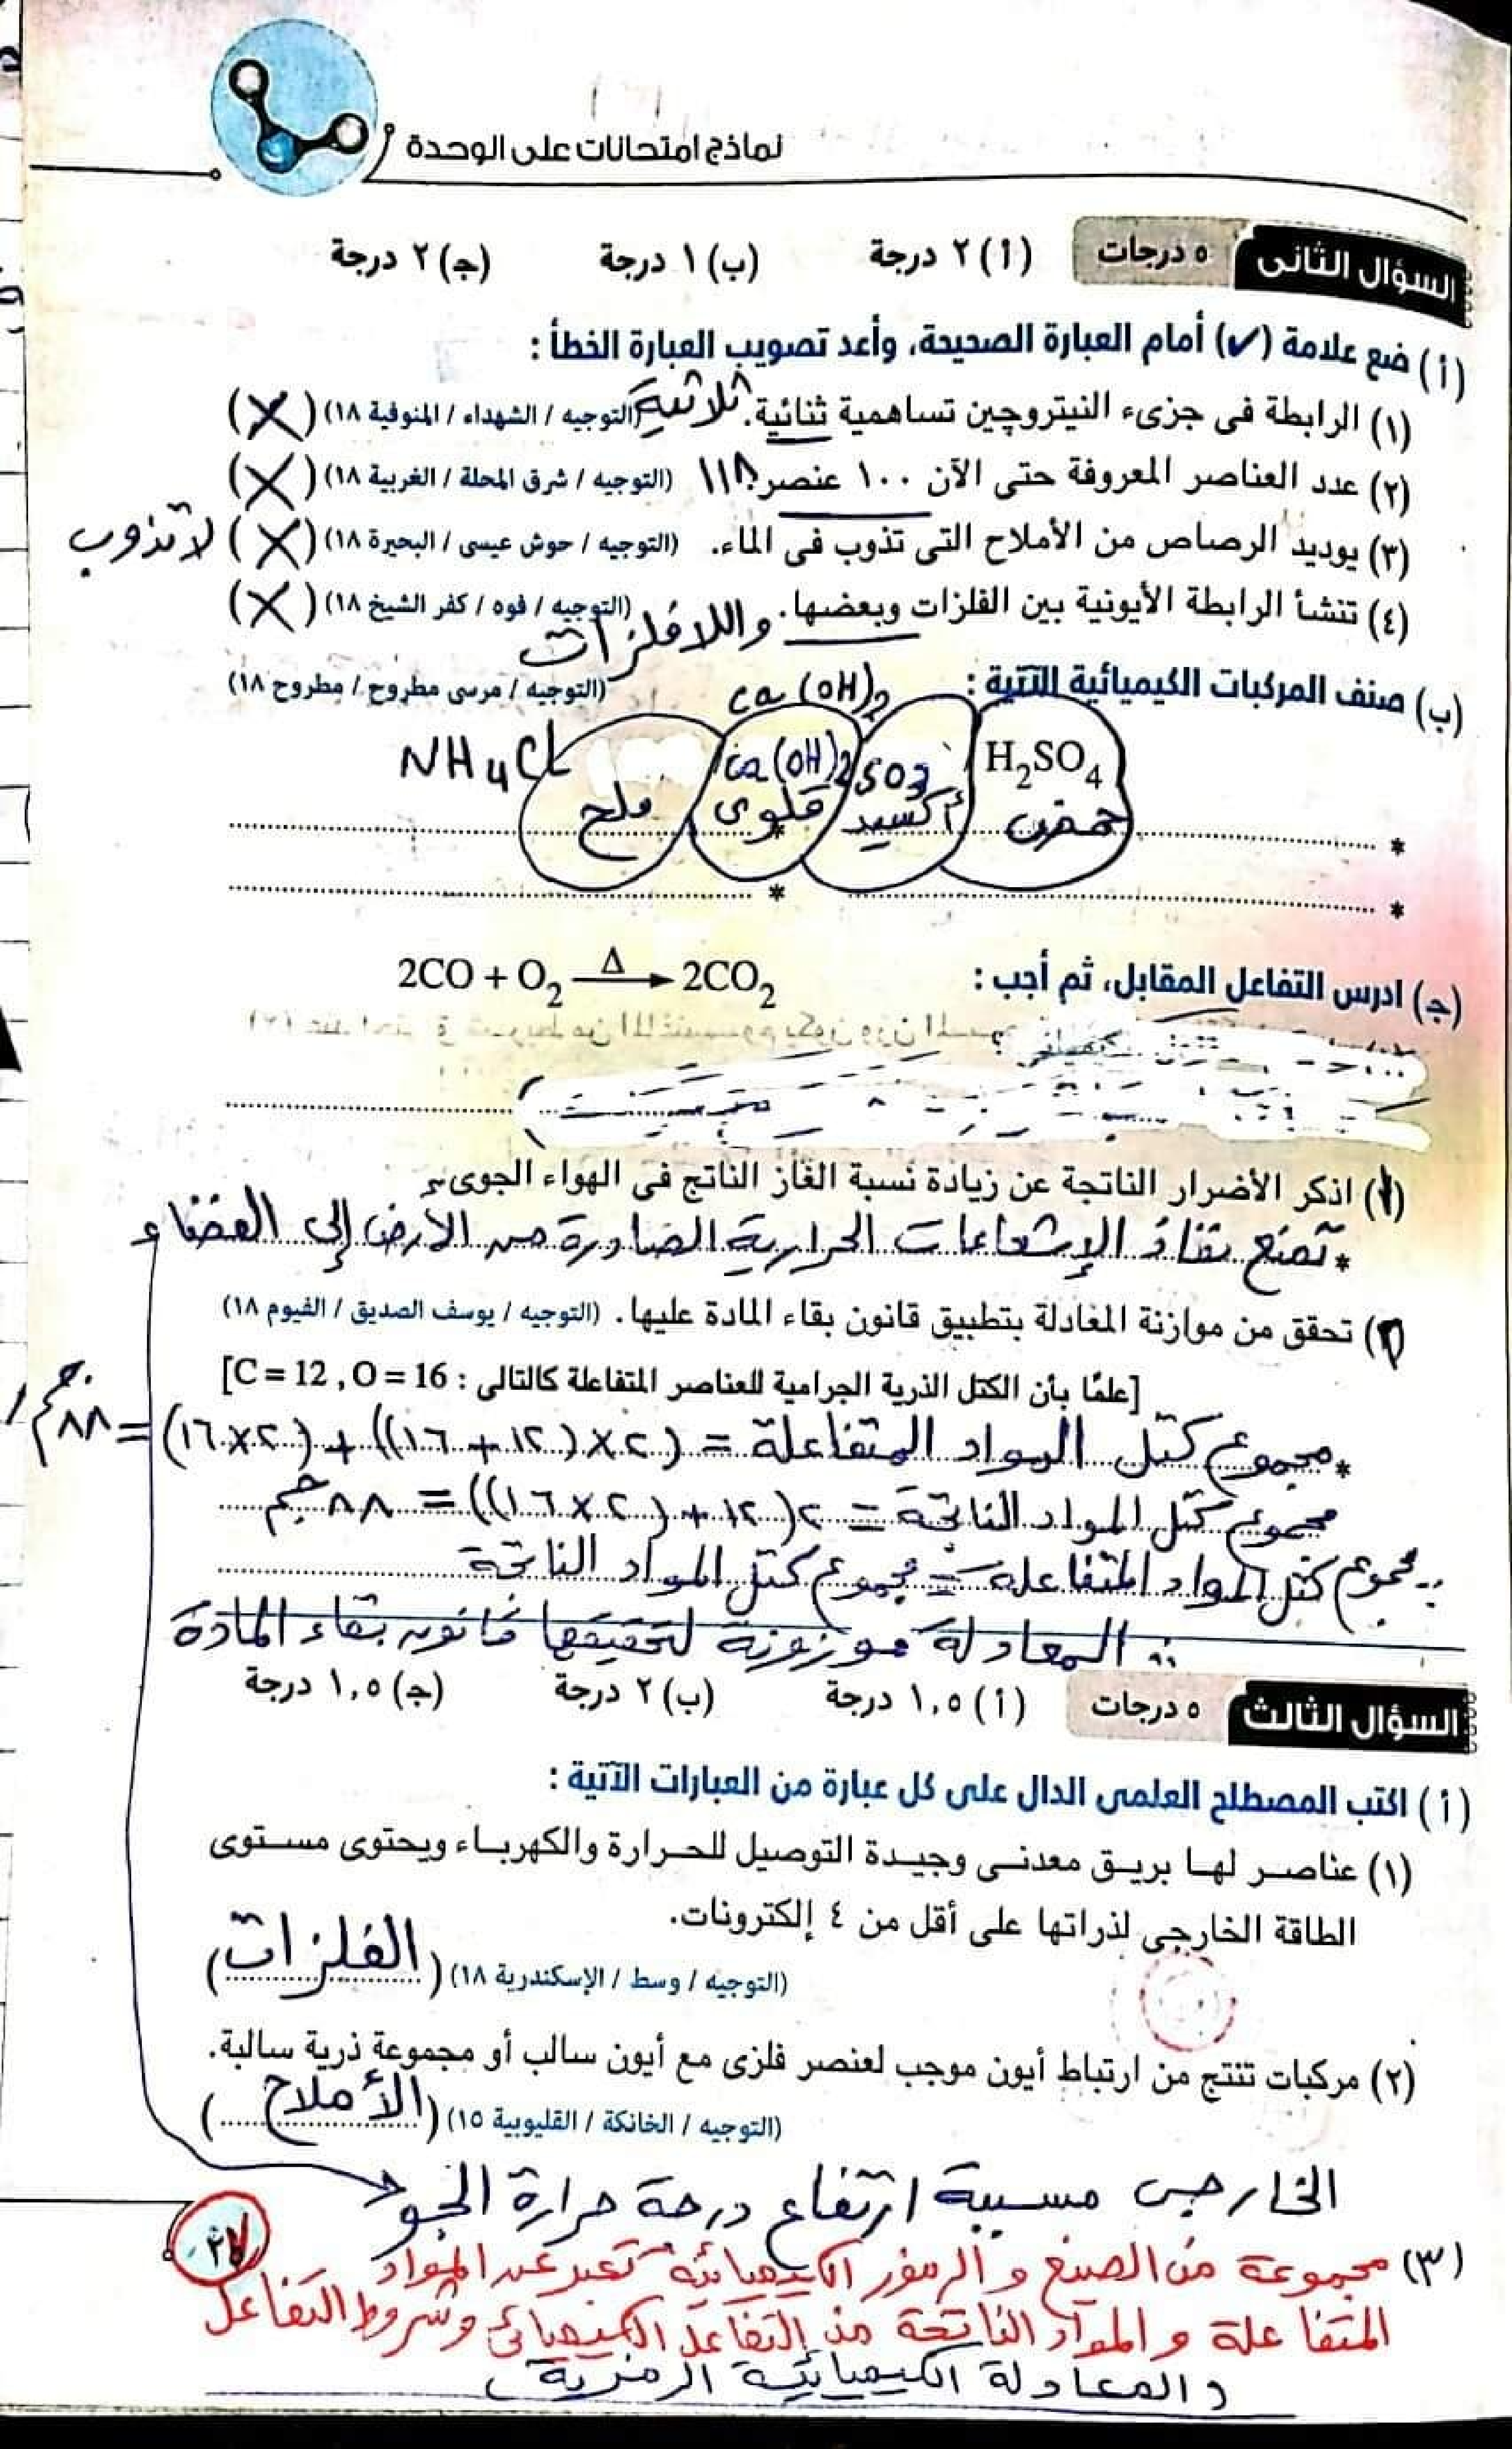 نماذج امتحانات على الوحدة
السؤال الثانى ٥ درجات (أ) ٢ درجة (ب) ١ درجة (جـ) ٢ درجة
(أ) ضع علامة (✓) أمام العبارة الصحيحة، وأعد تصويب العبارة الخطأ :
(١) الرابطة فى جزىء النيتروچين تساهمية ثنائية. ثلاثية (التوجيه / الشهداء / المنوفية ١٨) (X)
(٢) عدد العناصر المعروفة حتى الآن ١٠٠ عنصر. ١١٨ (التوجيه / شرق المحلة / الغربية ١٨) (X)
(٣) يوديد الرصاص من الأملاح التى تذوب فى الماء. (التوجيه / حوش عيسى / البحيرة ١٨) (X) لا تذوب
(٤) تنشأ الرابطة الأيونية بين الفلزات وبعضها. (التوجيه / فوه / كفر الشيخ ١٨) (X)
واللافلزات
(ب) صنف المركبات الكيميائية الآتية : (التوجيه / مرسى مطروح / مطروح ١٨)
ca (OH)2
H2SO4 SO3 ca (OH)2 NH4Cl
حمض أكسيد قلوى ملح
(جـ) ادرس التفاعل المقابل، ثم أجب : 2CO + O2 —Δ→ 2CO2
(١) اذكر الأضرار الناتجة عن زيادة نسبة الغاز الناتج فى الهواء الجوى
* تمنع نفاذ الإشعاعات الحرارية الصادرة من الأرض إلى الفضاء
(٢) تحقق من موازنة المعادلة بتطبيق قانون بقاء المادة عليها. (التوجيه / يوسف الصديق / الفيوم ١٨)
[علمًا بأن الكتل الذرية الجرامية للعناصر المتفاعلة كالتالى : C = 12 , O = 16]
* مجموع كتل المواد المتفاعلة = (٢×(١٢ + ١٦)) + (٢×١٦) = ٨٨ جم
مجموع كتل المواد الناتجة = ٢(١٢ + (٢×١٦)) = ٨٨ جم
∴ مجموع كتل المواد المتفاعلة = مجموع كتل المواد الناتجة
∴ المعادلة موزونة لتحقيقها قانون بقاء المادة
السؤال الثالث ٥ درجات (أ) ١,٥ درجة (ب) ٢ درجة (جـ) ١,٥ درجة
(أ) اكتب المصطلح العلمى الدال على كل عبارة من العبارات الآتية :
(١) عناصر لها بريق معدنى وجيدة التوصيل للحرارة والكهرباء ويحتوى مستوى
الطاقة الخارجى لذراتها على أقل من ٤ إلكترونات.
(التوجيه / وسط / الإسكندرية ١٨) (الفلزات)
(٢) مركبات تنتج من ارتباط أيون موجب لعنصر فلزى مع أيون سالب أو مجموعة ذرية سالبة.
(التوجيه / الخانكة / القليوبية ١٥) (الأملاح)
الخارجى مسببة ارتفاع درجة حرارة الجو
(٣) مجموعة من الصيغ والرموز الكيميائية تعبر عن المواد
المتفاعلة والمواد الناتجة من التفاعل الكيميائى وشروط التفاعل
( المعادلة الكيميائية الرمزية )